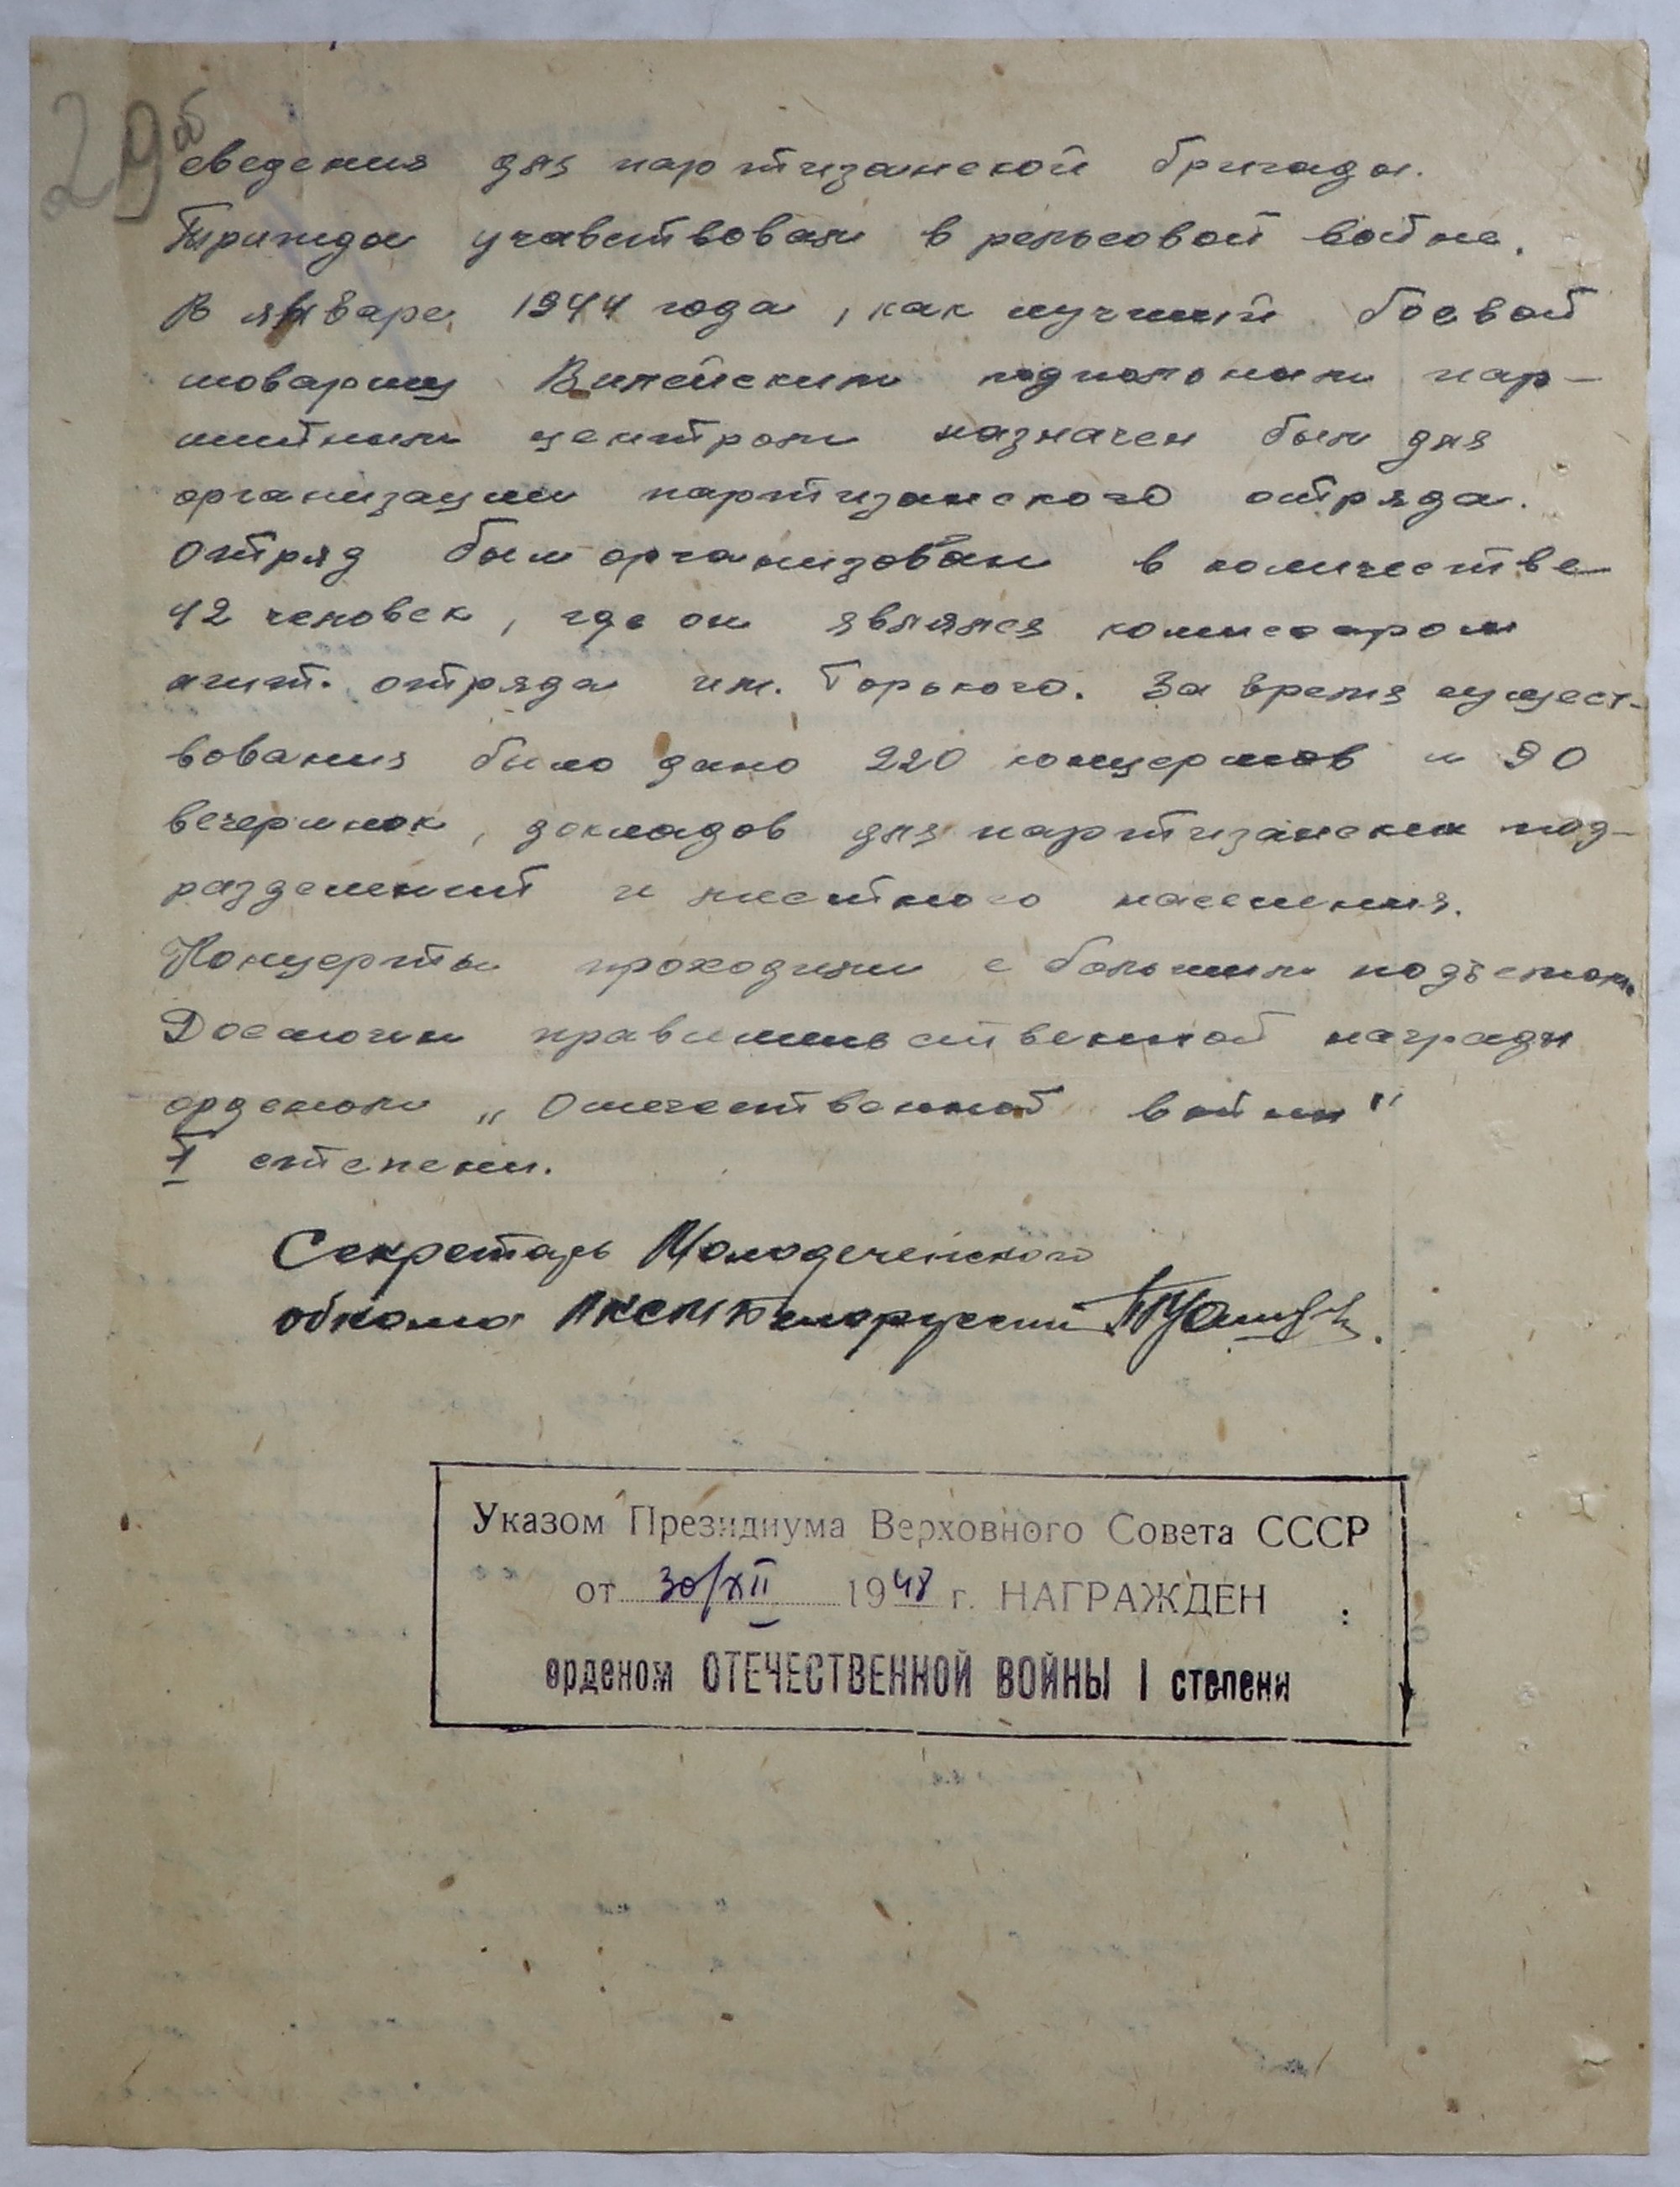 29об
сведения для партизанской бригады.
Трижды учавствовал в рельсовой войне.
В январе 1944 года, как лучший боевой
товарищ Вилейским подпольным пар-
тийным центром назначен был для
организации партизанского отряда.
Отряд был организован в количестве
42 человек, где он являлся комиссаром
агит. отряда им. Горького. За время сущест-
вования было дано 220 концертов и 90
вечеринок, докладов для партизанских под-
разделений и местного населения.
Концерты проходили с большим подъемом.
Достоин правительственной награды
орденом „Отечественной войны"
I степени.
Секретарь Молодеченского
обкома ЛКСМ Белоруссии
Указом Президиума Верховного Совета СССР
от 30/XII 1948 г. НАГРАЖДЕН :
орденом ОТЕЧЕСТВЕННОЙ ВОЙНЫ I степени